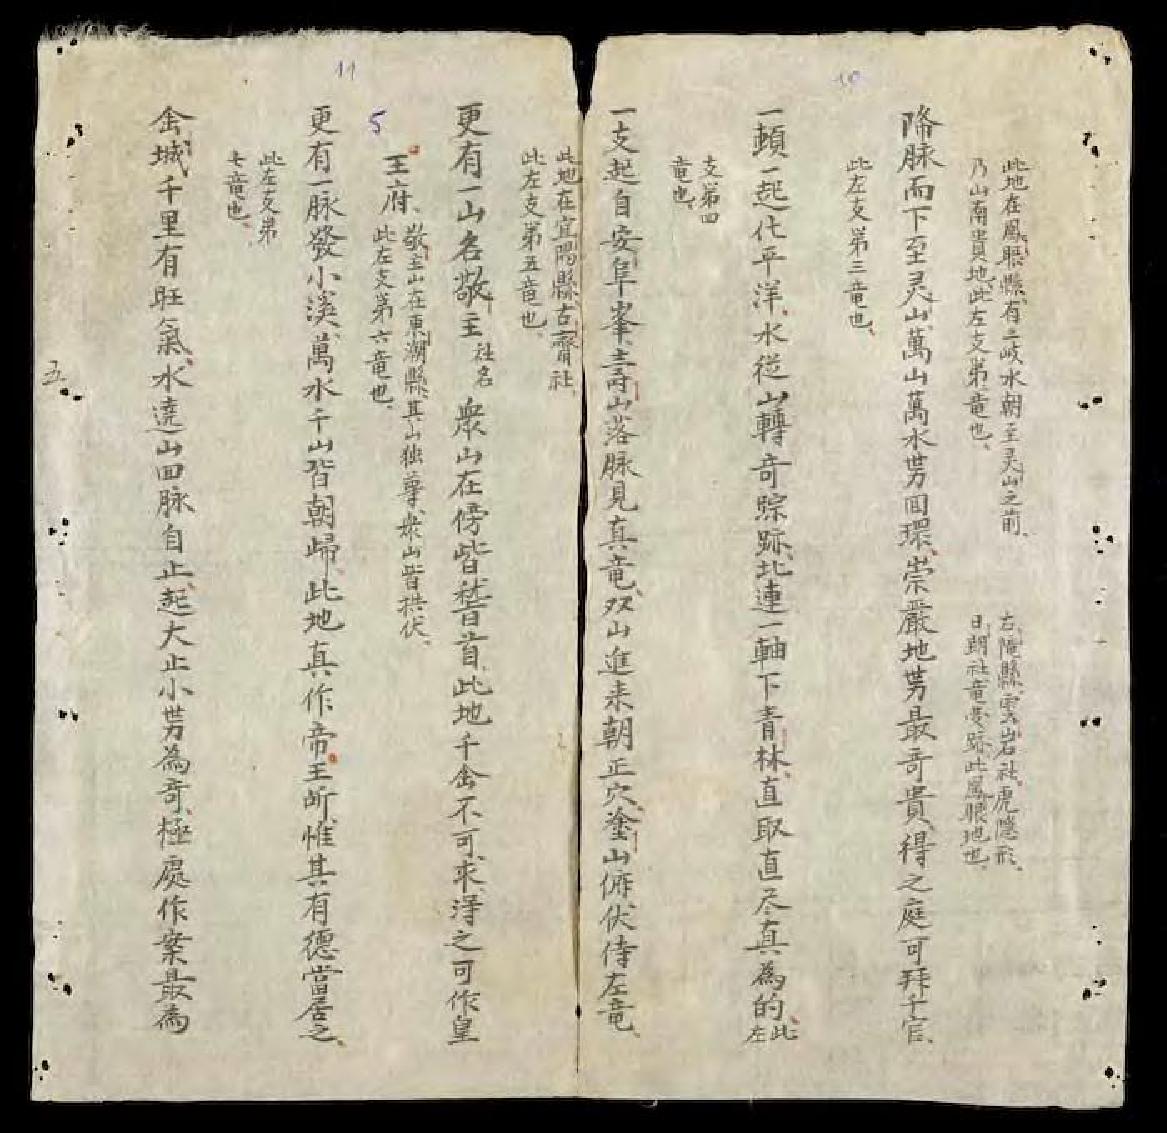 10
此地在鳳眼縣有三岐水朝至灵山之前
乃山南貴地此左支第二竜也
右隴縣雲岩社虎隱形
日朗社竜耍跡此鳳眼地也
降脉而下至灵山萬山萬水势囬環崇嚴地势最奇貴得之庭可拜千官
此左支第三竜也
一頓一起化平洋水從山轉奇踪跡北連一軸下青林直取直尽真為的此左
支第四
竜也
一支起自安阜峯壽山落脉見真竜双山進来朝正穴塗山俯伏侍左竜
此地在宜陽縣古齋社
此左支第五竜也
11
更有一山名敬主社名衆山在傍皆嵇首此地千金不可求淂之可作皇
5
王府敬主山在東潮縣其山独尊衆山皆拱伏
此左支第六竜也
更有一脉發小溪萬水千山皆朝歸此地真作帝王所惟其有德當居之
此左支第
七竜也
金城千里有旺氣水遶山回脉自止起大止小势為奇極處作案最為
五